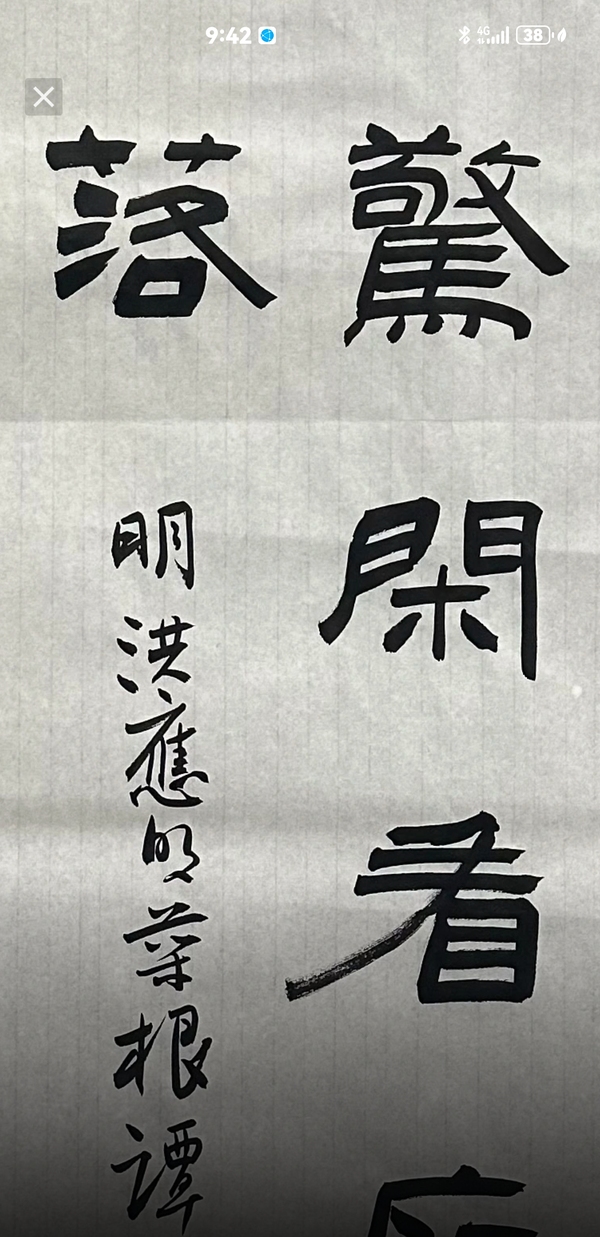 9:42
4G 38
驚閑看
落
明洪應明菜根譚